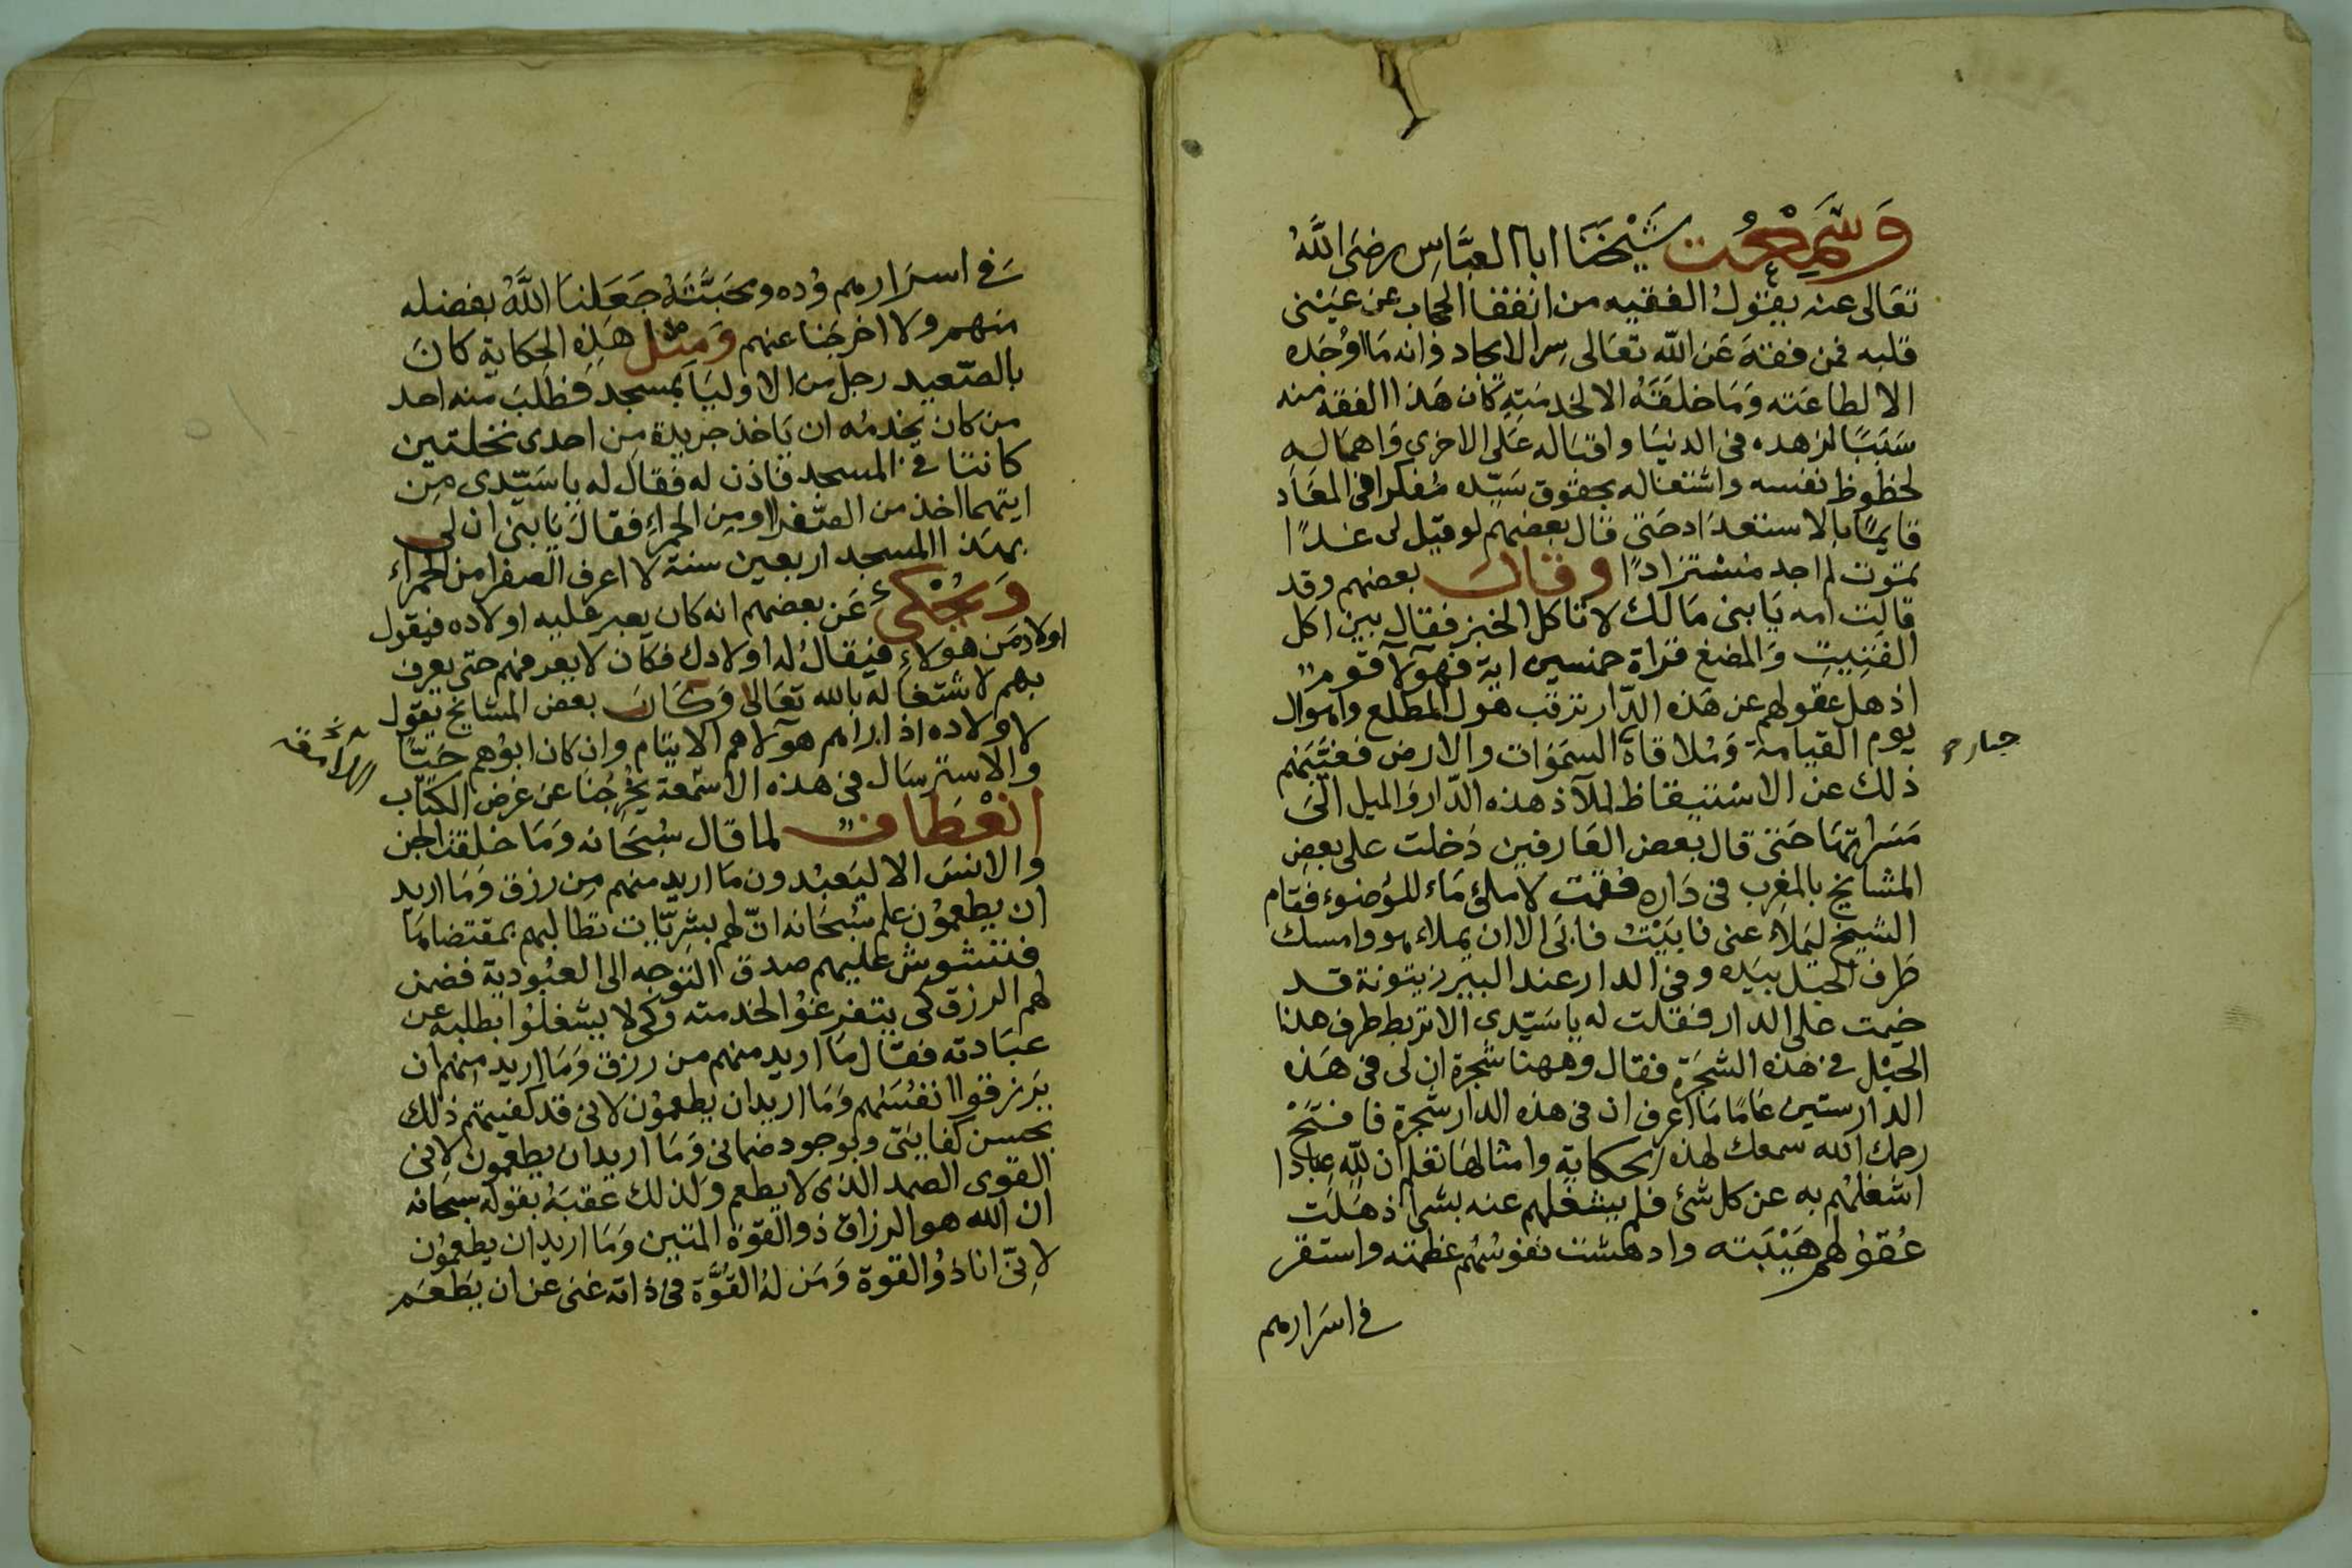 وَسَمِعْتُ شَيْخَنَا ابا العبَّاسِ رضىَ اللَّهُ
تعَالى عنه يقول الفقيه من انفقا الحجاب عن عَيْنى
قلبه فمن فقهَ عَن الله تعَالى سِر الايجاد وانه مَا اوُجَده
الا لطاعَته وَمَا خلقَهُ الا لخدمَتِهِ كَان هَذا الفقه منه
سَبَبًا لزهده فى الدنيَا واقباله عَلى الاخرى وَاهمَاله
لحظوظ نفسه واشتغاله بحقوق سَيّده مُفكرا فى المعَاد
قايمًا بالاستعدَاد حَتى قال بعضهم لو قيل لى غدًا
تموت لم اجد مُستزادًا وقال بعضهم وقد
قالت امه يَا بنى مَا لك لا تاكل الخبز فقال بين اكل
الفتيت وَالمضغ قراة خمسين اية فهولآ قوم
اذهل عقولهم عن هَذه الدّار ترقب هول المطلع واهوال
يوم القيامة وَمُلاقاة السمَوات والارض فغَيَّبَهم
ذلك عن الاستيقاظ لملآذ هذه الدّار وَالميل الىَ
مَسَراتهَا حَتى قال بعض العَارفين دَخلت على بعضِ
المشايخ بالمغرب فى دَاره فقمت لاملئ مَاء للوُضوء فقام
الشيخ ليَملَاء عنى فابَيْتُ فابَى الا ان يملاء هو وامسك
طَرف الحبَل بيَده وفى الدار عند البير زيتونة قد
خيمت على الدار فقلت له يا سَيّدى الا تربط طرف هذا
الحَبْل فى هَذه الشَجَرَة فقال وههنا شجرة ان لى فى هَذه
الدار ستين عَامًا مَا اعرف ان فى هذه الدار شجرة فافتَحْ
رحمك الله سمعك لهذه الحكاية وامثالهَا تعلم ان للّهِ عِبادا
اشغلهُم به عن كل شئ فلم يشغلهم عنه بشى اذهَلت
عُقوُلهم هَيْبَته وادهشت نفوسُهُم عظمته واستقر
فى اسَرارهم
جبار
فى اسَرارهم وُده ومحَبَّتهُ جَعَلنَا اللَّهُ بفضله
منهم ولا اخرجَنا عنهم وَمثل هَذه الحِكاية كانَ
بالصّعيد رجل من الاوليَا بمسجد فطلبَ منه احد
من كان يخدمُه ان يَاخذ جريدة مِن احدى نخلتين
كانتا فى المسجد فاذن له فقال له يا سَيّدى مِن
ايتهما اخذ من الصّفرا او مِن الحمراءِ فقالَ يَا بنى ان لى
بهَذا المسجد اربعين سنة لا اعرف الصفرا من الحمراء
وَيُحْكى عَن بعضهم انه كان يعبر عليه اولاده فيقول
اولاد مَن هولاءِ فيُقالُ له اولادك فكان لا يعرفهم حتى يعرف
بهم لاشتغاله بالله تعَالى وَكَانَ بعض المشايخ يقول
لاولاده اذا راهم هولآ هم الايتام وان كان ابوُهم حَيًّا
والاسترسَال فى هذه الاشعة يُخْرجُنا عن غرض الكتاب
انْعطَافٌ لما قال سُبحَانه وَمَا خلقت الجن
والانسَ الا ليَعبُدون مَا اريد منهم مِن رزق وَمَا اريد
ان يطعموُن علم سُبحَانه انّ لهم بشرِيّات تطالبهم بمقتضاهَا
فتشوش عليهم صدق التوجه الى العبُودية فضمن
لهم الرزق كى يتفرغوُا لخدمته وكى لا يشغلوُا بطلبه عن
عبَادته فقال مَا اريد منهم من رزق وَمَا اريد منهم ان
يَرزقوا انفسَهُم وَمَا اريد ان يطعموُن لانى قد كفيتهم ذلك
بحسن كفايتى وبوجود ضمانى وَمَا اريد ان يطعمون لانى
القوى الصمد الذى لا يطعم وَلذلك عقبَهُ بقوله سبحَانه
ان الله هو الرزاق ذو القوة المتين وَمَا اريد ان يطعموُن
لانّى انا ذُو القوة وَمَن لهُ القُوَّة فى ذاته غنى عن ان يَطعَم